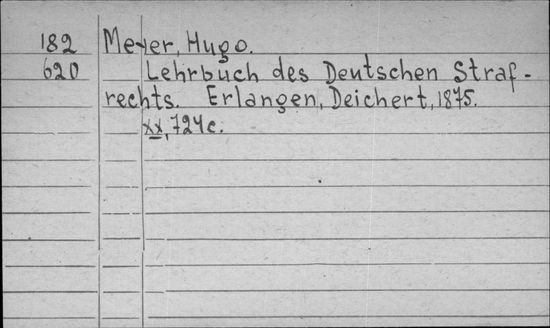 182 Meyer, Hugo.
620 Lehrbuch des Deutschen Straf-
rechts. Erlangen, Deichert, 1875.
xx, 724c.